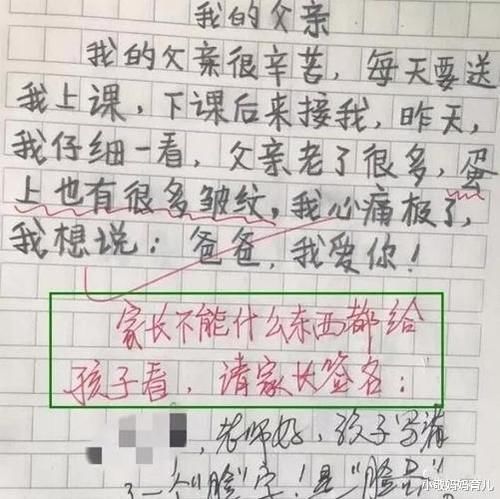 我的父亲
我的父亲很辛苦，每天要送
我上课，下课后来接我，昨天，
我仔细一看，父亲老了很多，蛋
上也有很多皱纹，我心痛极了，
我想说：爸爸，我爱你！
家长不能什么东西都给
孩子看，请家长签名：
，老师好，孩子写清
了一个"脸"字！是"脸
小敬妈妈育儿